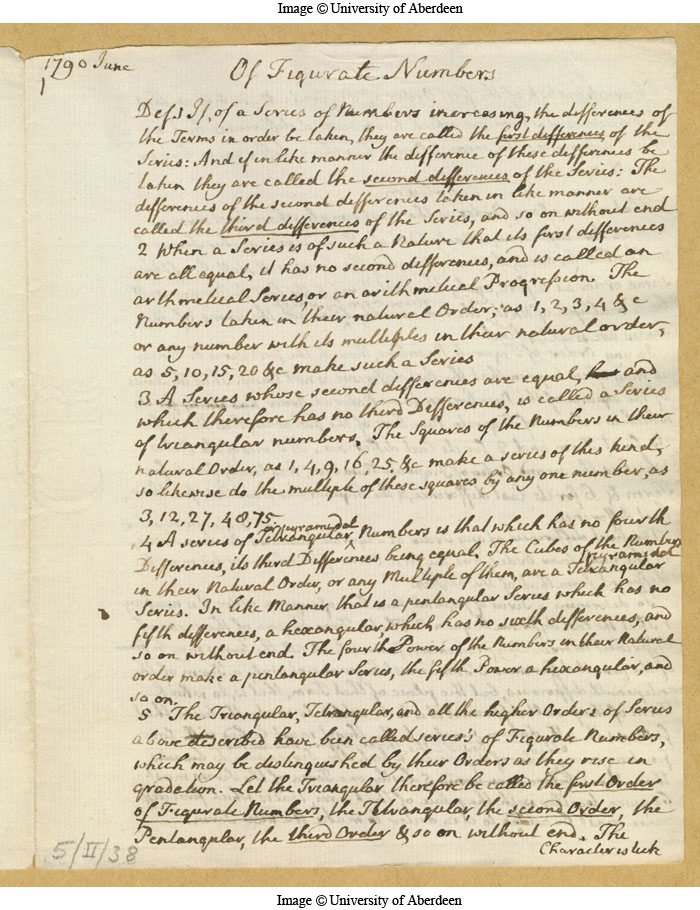 Image © University of Aberdeen
1790 June
Of Figurate Numbers
Def.1 If, of a Series of Numbers increasing, the differences of
the Terms in order be taken, they are called the first differences of the
Series: And if in like manner the difference of these differences be
taken they are called the second differences of the Series: The
differences of the second differences taken in like manner are
called the third differences of the Series, and so on without end
2 When a Series is of such a Nature that its first differences
are all equal, it has no second differences, and is called an
arthmetical Series, or an arithmetical Progression. The
Numbers taken in their natural Order, as 1, 2, 3, 4 &c
or any number with its multiples in their natural order,
as 5, 10, 15, 20 &c make such a Series
3 A Series whose second differences are equal, and
which therefore has no third Differences, is called a Series
of triangular numbers. The Squares of the Numbers in their
natural Order, as 1, 4, 9, 16, 25, &c make a series of this kind,
so likewise do the multiple of these squares by any one number, as
3, 12, 27, 48, 75
pyramidal
4 A series of Tetrangular Numbers is that which has no fourth
Differences, its third Differences being equal. The Cubes of the Numbers
pyramidal
in their Natural Order, or any Multiple of them, are a Tetrangular
Series. In like Manner that is a pentangular Series which has no
fifth differences, a hexangular which has no sixth differences, and
so on without end. The fourth Power of the Numbers in their Natural
order make a pentangular Series, the fifth Power a hexangular, and
so on.
5 The Triangular, Tetrangular, and all the higher Orders of Series
above described have been called series's of Figurate Numbers,
which may be distinguished by their Orders as they rise in
gradation. Let the Triangular therefore be called the first Order
of Figurate Numbers, the Tetrangular, the second Order, the
Pentangular, the third Order & so on without end. The
Characteristick
5/II/38
Image © University of Aberdeen